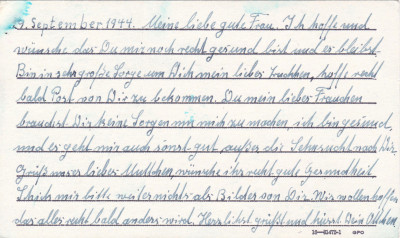 9. September 1944. Meine liebe gute Frau. Ich hoffe und
wünsche das Du mir noch recht gesund bist und es bleibst.
Bin in sehr große Sorge um Dich mein liebes Frauchen, hoffe recht
bald Post von Dir zu bekommen. Du mein liebes Frauchen
brauchst Dir keine Sorgen um mich zu machen, ich bin gesund,
und es geht mir auch sonst gut außer die Sehnsucht nach Dir.
Grüß unser liebes Muttchen, wünsche ihr recht gut Gesundheit.
Schick mir bitte weiter nichts als Bilder von Dir. Wir wollen hoffen
das alles recht bald anders wird. Herzlichst grüßt und küsst Dein
16—61473-1 GPO